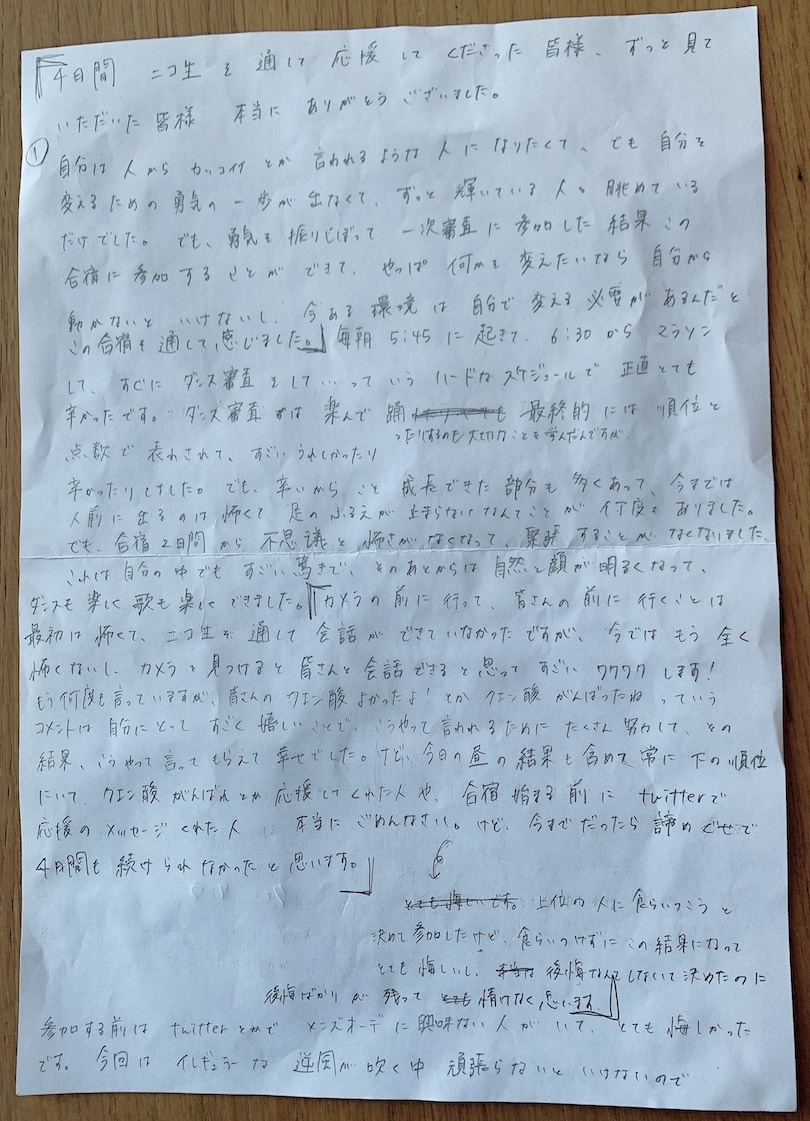 「4日間 ニコ生を通して応援してくださった皆様、ずっと見て
いただいた皆様 本当にありがとうございました。
① 自分は人からカッコイイとか言われるような人になりたくて、でも自分を
変えるための勇気の一歩が出なくて、ずっと輝いている人を眺めている
だけでした。でも、勇気を振りしぼって一次審査に参加した結果この
合宿に参加することができて、やっぱ何かを変えたいなら自分から
動かないといけないし、今ある環境は自分で変える必要があるんだと
この合宿を通して感じました。」毎朝5:45に起きて、6:30からマラソン
して、すぐにダンス審査をしていっていうハードなスケジュールで正直とても
辛かったです。ダンス審査ずは楽んで踊 最終的には順位と
ったりするのも大切なことを学んだんですが、
点数で表わされて、すごいうれしかったり
辛かったりしました。でも、辛いからこと成長できた部分も多くあって、今までは
人前に出るのは怖くて足のふるえが止まらないなんてことが何度もありました。
でも、合宿2日間から不思議と怖さがなくなって、緊張することがなくなりました。
これは自分の中でもすごい驚きで、そのあとからは自然と顔が明るくなって、
ダンスも楽しく歌も楽しくできました。「カメラの前に行って、皆さんの前に行くことは
最初は怖くて、ニコ生を通して会話ができていなかったですが、今ではもう全く
怖くないし、カメラを見つけると皆さんと会話できると思ってすごいワクワクします!
もう何度も言っていますが、皆さんのクエン酸よかったよ!とかクエン酸がんばったねっていう
コメントは自分にとってすごく嬉しいことで、こうやって言われるためにたくさん努力して、その
結果、こうやって言ってもらえて幸せでした。けど、今日の昼の結果も含めて常に下の順位
にいて、クエン酸がんばれとか応援してくれた人や、合宿始まる前にtwitterで
応援のメッセージくれた人 本当にごめんなさい。けど、今までだったら諦めで
4日間も続けられなかったと思います。」
とても悔しいです。上位の人に食らいつこうと
決めて参加したけど、食らいつけずにこの結果になって
とても悔しいし、後悔なんてしないて決めたのに
後悔ばかりが残って とても 情けなく思います」
参加する前はtwitterとかでメンズオーデに興味ない人がいて、とても悔しかった
です。今回はイレギュラーな逆風が吹く中頑張らないといけないので